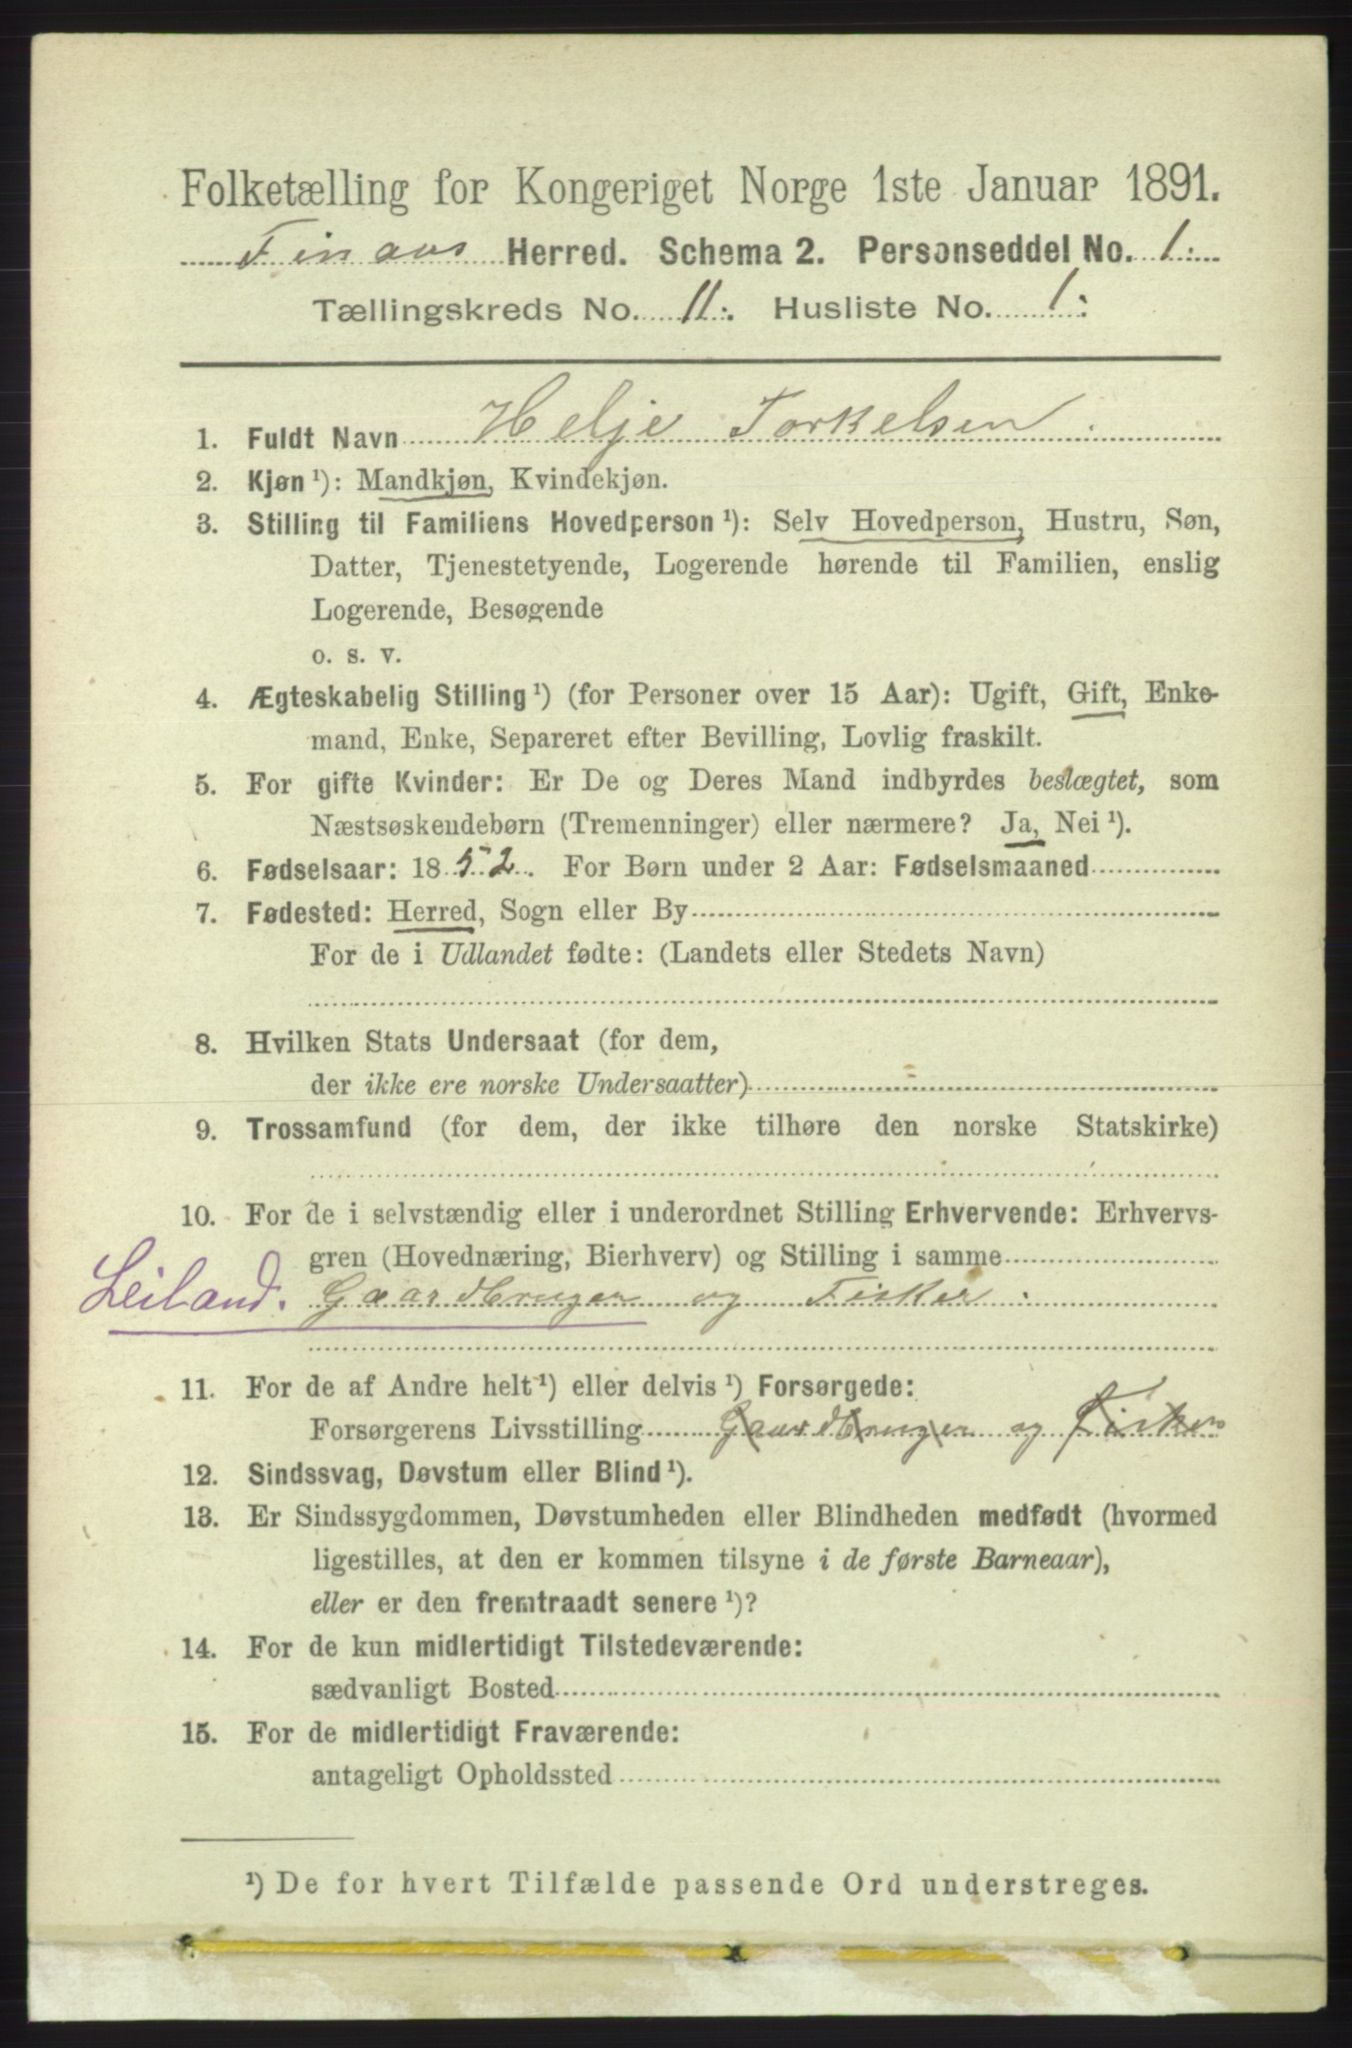 Folketælling for Kongeriget Norge 1ste Januar 1891.
Finaas Herred. Schema 2. Personseddel No. 1.
Tællingskreds No. 11. Husliste No. 1.
1. Fuldt Navn Helje Torkelsen.
2. Kjøn¹): Mandkjøn, Kvindekjøn.
3. Stilling til Familiens Hovedperson¹): Selv Hovedperson, Hustru, Søn,
Datter, Tjenestetyende, Logerende hørende til Familien, enslig
Logerende, Besøgende
o. s. v.
4. Ægteskabelig Stilling¹) (for Personer over 15 Aar): Ugift, Gift, Enke-
mand, Enke, Separeret efter Bevilling, Lovlig fraskilt.
5. For gifte Kvinder: Er De og Deres Mand indbyrdes beslægtet, som
Næstsøskendebørn (Tremenninger) eller nærmere? Ja, Nei¹).
6. Fødselsaar: 1852. For Børn under 2 Aar: Fødselsmaaned
7. Fødested: Herred, Sogn eller By
For de i Udlandet fødte: (Landets eller Stedets Navn)
8. Hvilken Stats Undersaat (for dem,
der ikke ere norske Undersaatter)
9. Trossamfund (for dem, der ikke tilhøre den norske Statskirke)
10. For de i selvstændig eller i underordnet Stilling Erhvervende: Erhvervs-
gren (Hovednæring, Bierhverv) og Stilling i samme
Leiland. Gaardbruger og Fisker.
11. For de af Andre helt¹) eller delvis¹) Forsørgede:
Forsørgerens Livsstilling Gaardbruger og Fisker
12. Sindssvag, Døvstum eller Blind¹).
13. Er Sindssygdommen, Døvstumheden eller Blindheden medfødt (hvormed
ligestilles, at den er kommen tilsyne i de første Barneaar),
eller er den fremtraadt senere¹)?
14. For de kun midlertidigt Tilstedeværende:
sædvanligt Bosted
15. For de midlertidigt Fraværende:
antageligt Opholdssted
¹) De for hvert Tilfælde passende Ord understreges.